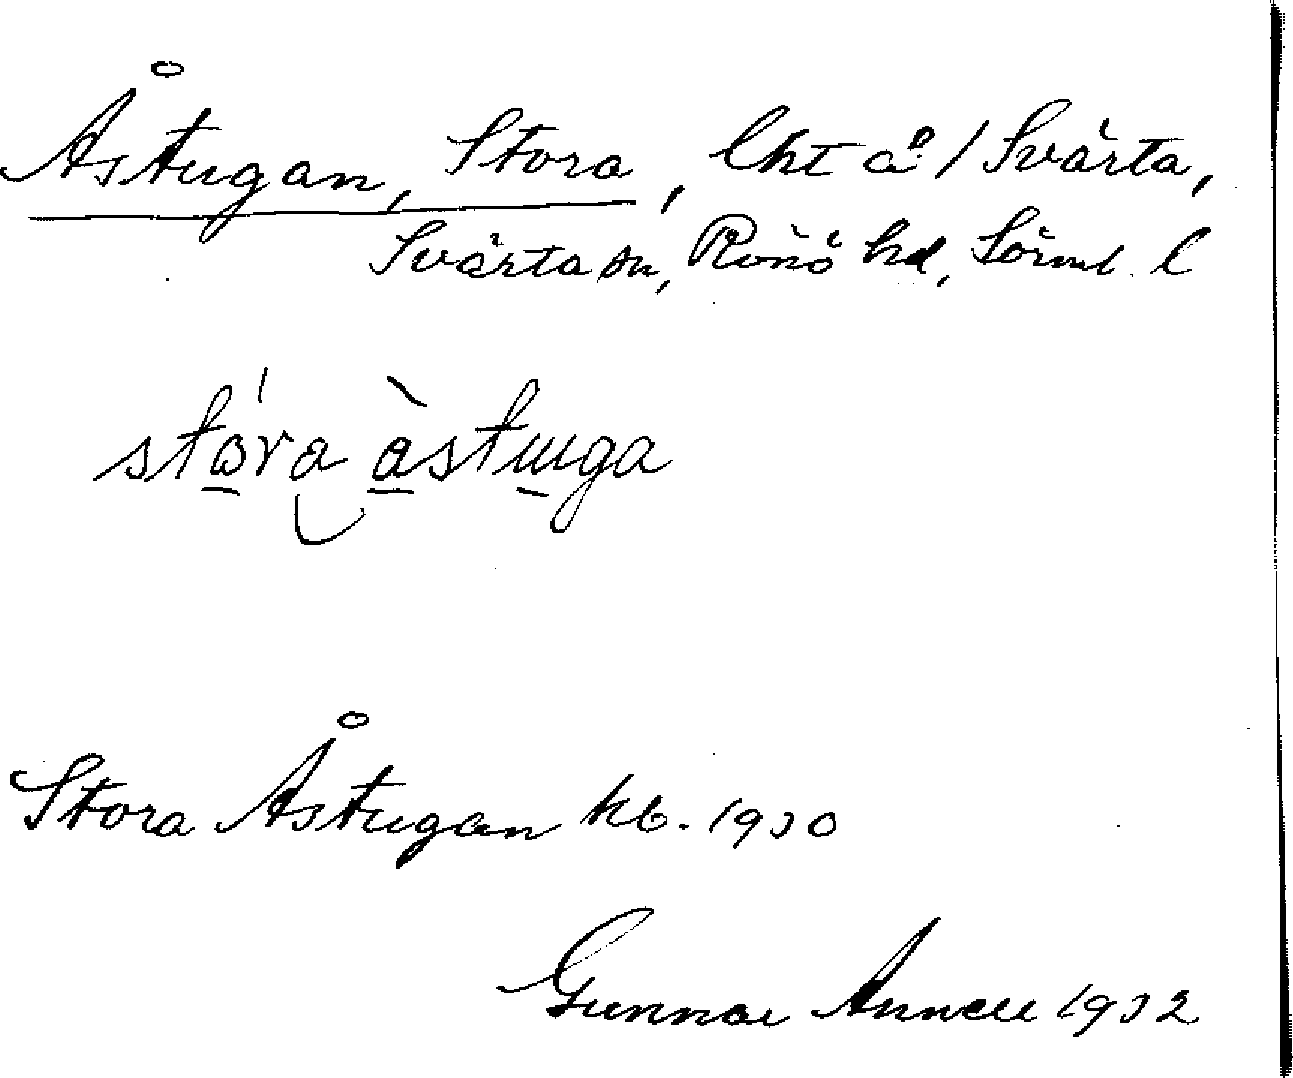 Åstugan, Stora, lht å / Svärta,
Svärta sn, Rönö hd, Sörml. l
stora åstuga
Stora Åstugan kb. 1930
Gunnar Annell 1932